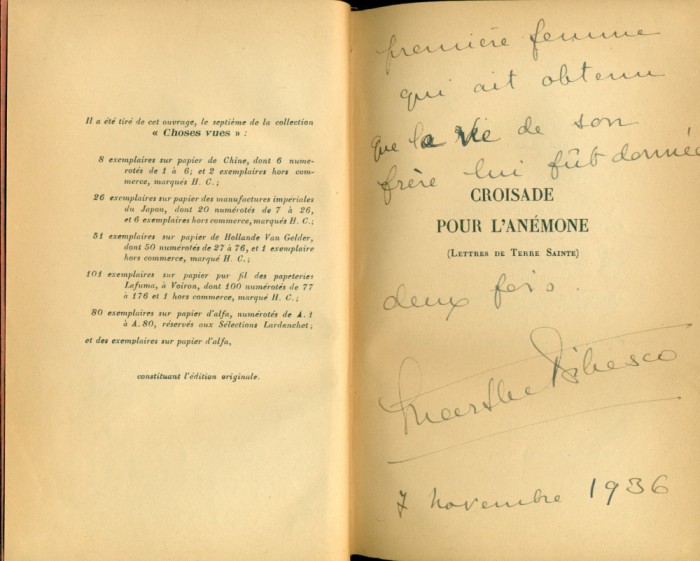 Il a été tiré de cet ouvrage, le septième de la collection
« Choses vues » :
8 exemplaires sur papier de Chine, dont 6 numé-
rotés de 1 à 6; et 2 exemplaires hors com-
merce, marqués H. C.;
26 exemplaires sur papier des manufactures impériales
du Japon, dont 20 numérotés de 7 à 26,
et 6 exemplaires hors commerce, marqués H. C.;
51 exemplaires sur papier de Hollande Van Gelder,
dont 50 numérotés de 27 à 76, et 1 exemplaire
hors commerce, marqué H. C.;
101 exemplaires sur papier pur fil des papeteries
Lafuma, à Voiron, dont 100 numérotés de 77
à 176 et 1 hors commerce, marqué H. C.;
80 exemplaires sur papier d'alfa, numérotés de A. 1
à A. 80, réservés aux Sélections Lardanchet;
et des exemplaires sur papier d'alfa,
constituant l'édition originale.
première femme
qui ait obtenu
que la vie de son
frère lui fût donnée
CROISADE
POUR L'ANÉMONE
(LETTRES DE TERRE SAINTE)
deux fois.
Marthe Bibesco
7 novembre 1936